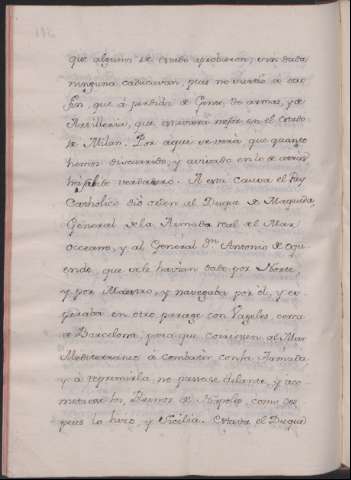 que alguno de estos aprobaron; sin duda
ninguna caducavan, pues no huvo à car
fin, que à perdida de Gente, de armas, y de
Artilleria, que estuviera mejor en el estado
de Milan. Por aqui se verà que quanto
hemos discurrido, y avisado en lo de atras
ha sido verdadero. A esta causa el Rey
Catholico diò orden al Duque de Maqueda,
General de la Armada real del Mar
Occeano, y al General Dn Antonio de
que le havian dado por Norte,
y por Maestro, y navegaba por el, y es
peraba en otro parage con Vageles cerca
de Barcelona, para que corriesen al Mar
Mediterraneo à combatir con la Armada
y à reprimirla no pasase delante, y aco
metiese los Reinos de Napoles, como des
pues lo hizo, y Sicilia. Estaba el Duque